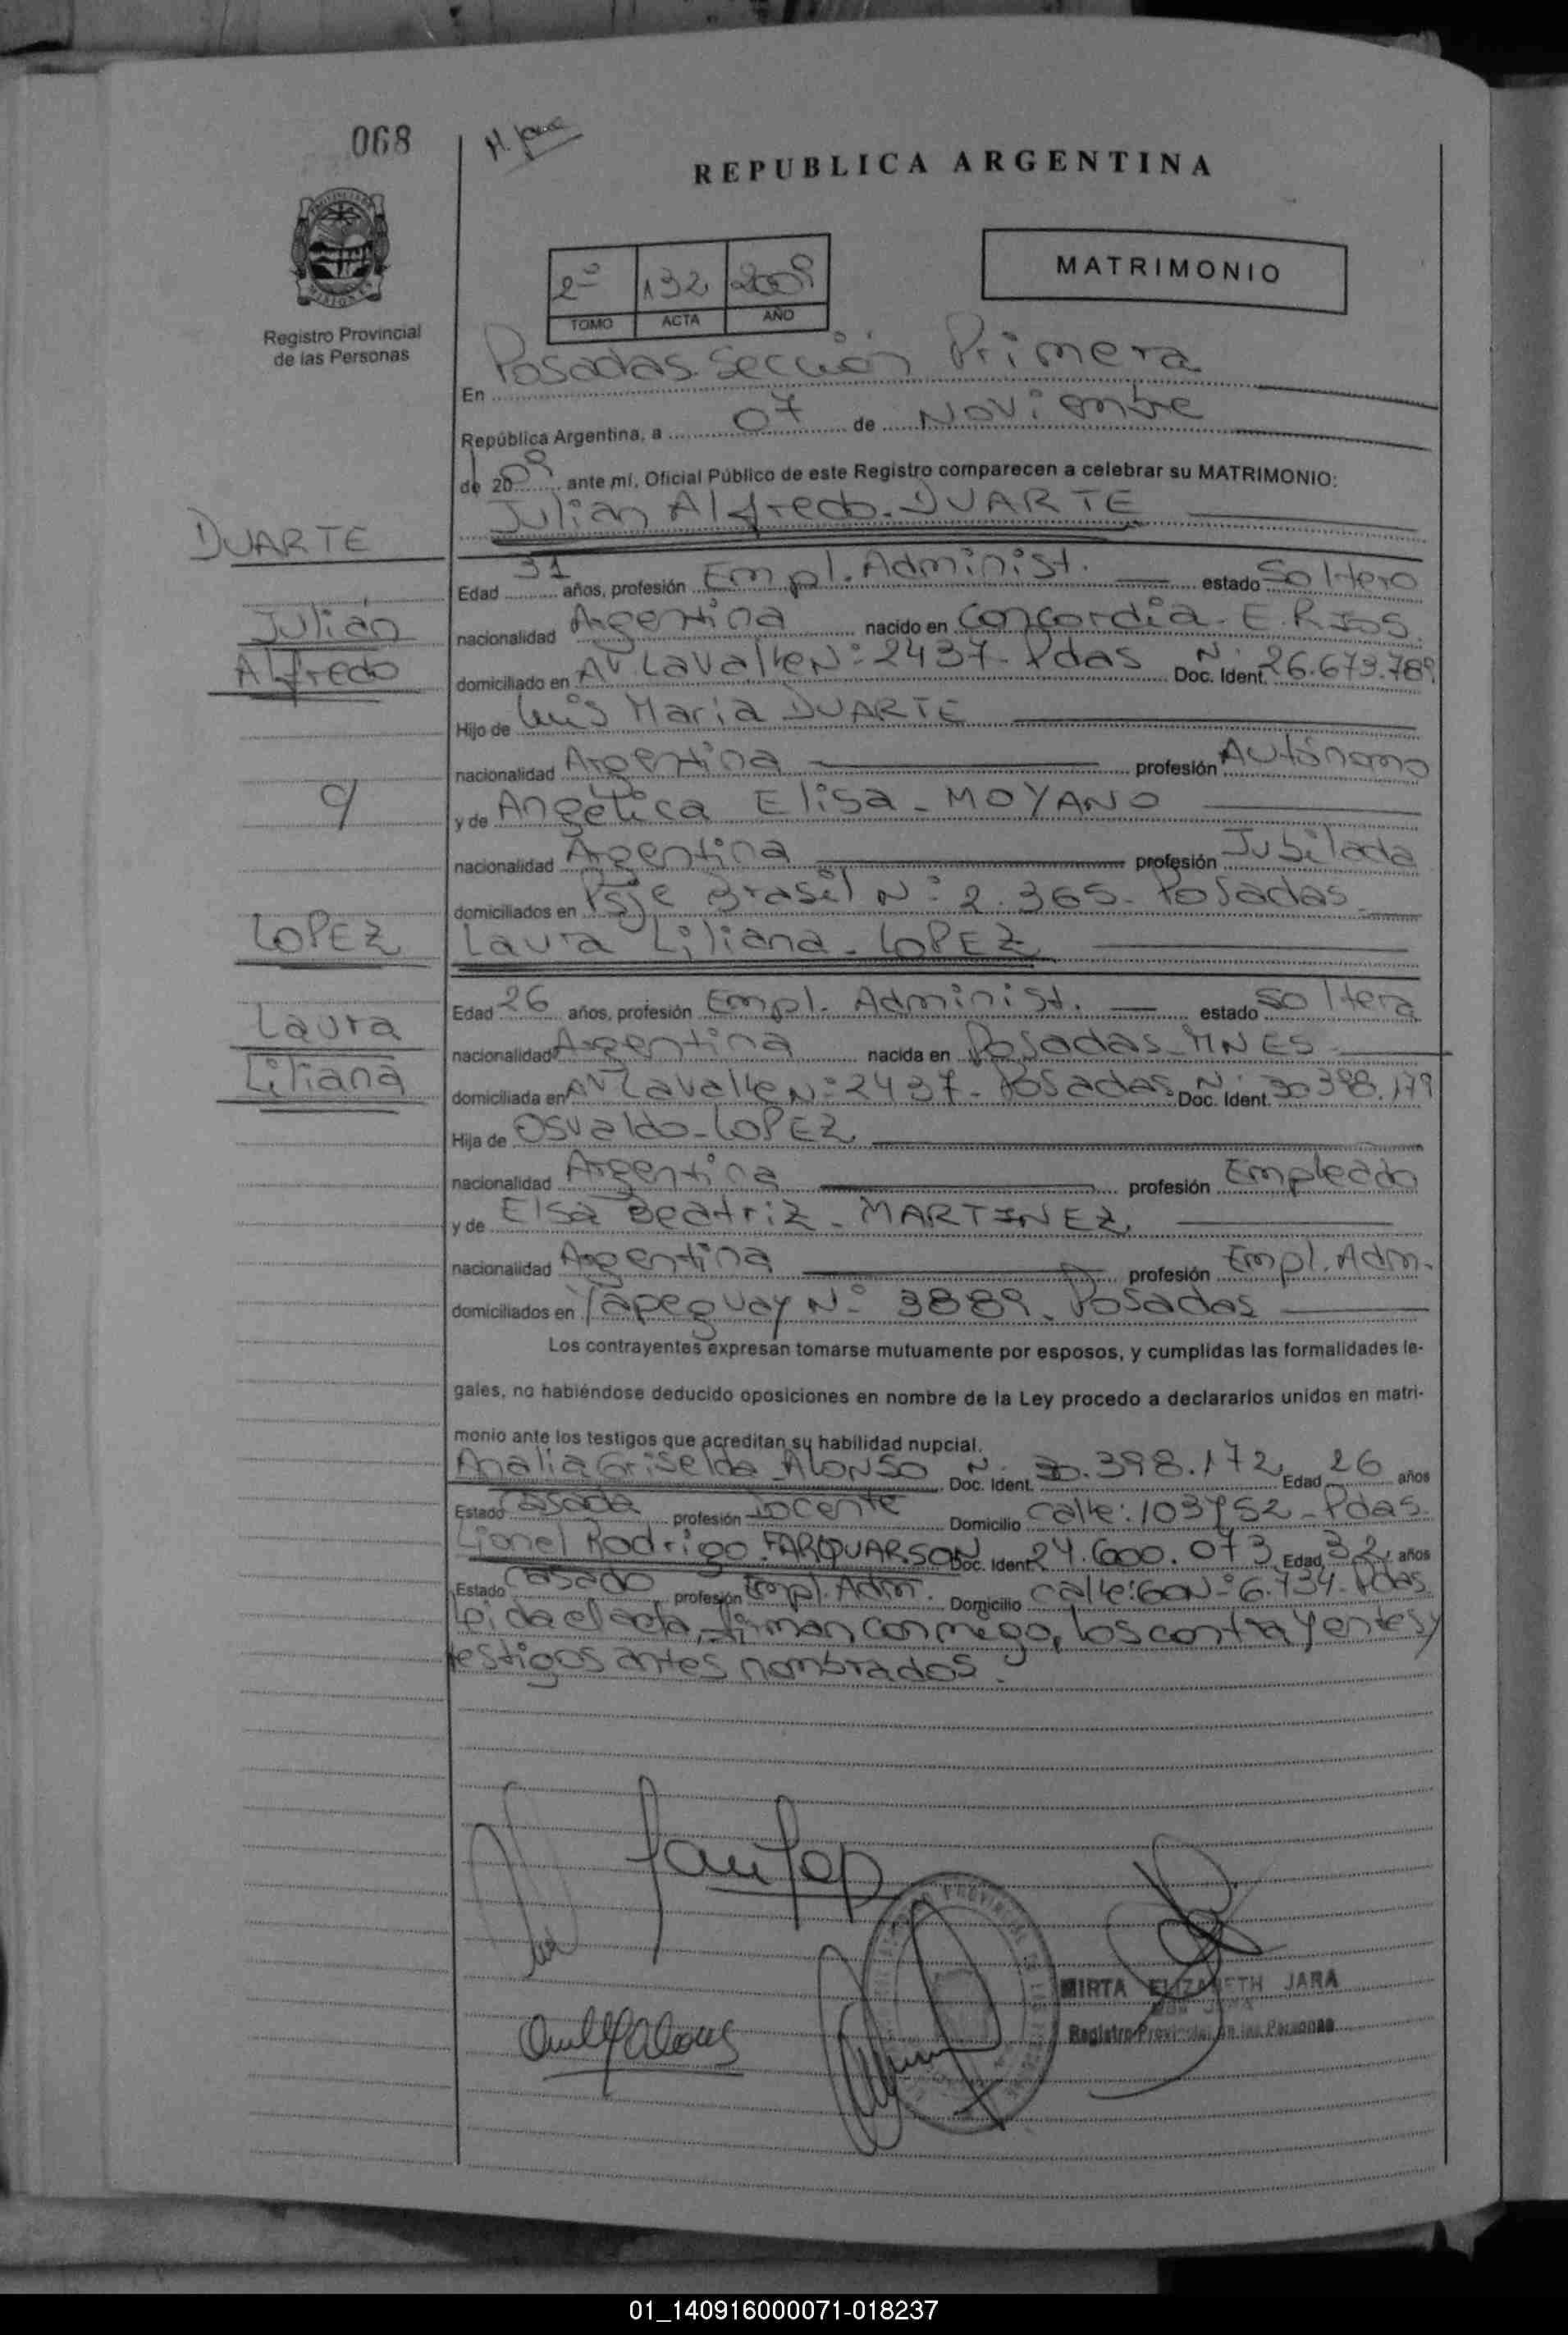 068
H. Jara
REPUBLICA ARGENTINA
MATRIMONIO
2º 132 2009
TOMO ACTA AÑO
PROVINCIA DE
MISIONES
Registro Provincial
de las Personas
En Posadas. Sección Primera
República Argentina, a 07 de Noviembre
de 2009 ante mí, Oficial Público de este Registro comparecen a celebrar su MATRIMONIO:
DUARTE
Julián
Alfredo
c/
LOPEZ
Laura
Liliana
Julián Alfredo. DUARTE
Edad 31 años, profesión Empl. Administ. estado Soltero
nacionalidad Argentina nacido en Concordia - E. RIOS.
domiciliado en Av. Lavalle Nº 2437 - Pdas Doc. Ident. Nº 26.673.789
Hijo de Luis María DUARTE
nacionalidad Argentina profesión Autónomo
y de Angélica Elisa - MOYANO
nacionalidad Argentina profesión Jubilada
domiciliados en Psje Brasil Nº 2.365 - Posadas
Laura Liliana - LOPEZ
Edad 26 años, profesión Empl. Administ. estado Soltera
nacionalidad Argentina nacida en Posadas - MNES
domiciliada en Av Lavalle Nº 2437 - Posadas Doc. Ident. Nº 30.398.179
Hija de Osvaldo - LOPEZ
nacionalidad Argentina profesión Empleado
y de Elsa Beatriz - MARTINEZ
nacionalidad Argentina profesión Empl. Adm.
domiciliados en Yapeguay Nº 3889 - Posadas
Los contrayentes expresan tomarse mutuamente por esposos, y cumplidas las formalidades le-
gales, no habiéndose deducido oposiciones en nombre de la Ley procedo a declararlos unidos en matri-
monio ante los testigos que acreditan su habilidad nupcial.
Analia Griselda - ALONSO Doc. Ident. Nº 30.398.172 Edad 26 años
Estado Casada profesión Docente Domicilio Calle: 103 y 52 - Pdas.
Lionel Rodrigo. FARQUARSON Doc. Ident. 24.600.073 Edad 32 años
Estado Casado profesión Empl. Adm. Domicilio Calle: 60 Nº 6.734 - Pdas.
Leída el acta, firman conmigo, los contrayentes y
testigos antes nombrados.
MIRTA ELIZABETH JARA
Registro Provincial de las Personas
01_140916000071-018237